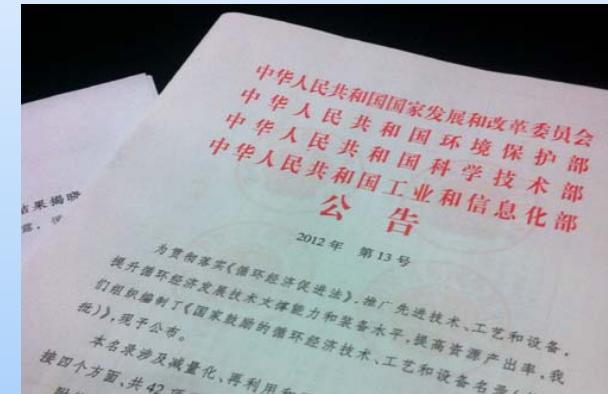 中华人民共和国国家发展和改革委员会
中华人民共和国环境保护部
中华人民共和国科学技术部
中华人民共和国工业和信息化部
公告
2012年 第13号
为贯彻落实《循环经济促进法》，推广先进技术、工艺和设备，
提升循环经济发展技术支撑能力和装备水平，提高资源产出率，我
们组织编制了《国家鼓励的循环经济技术、工艺和设备名录（
批）》，现予公布。
本名录涉及减量化、再利用和
接四个方面、共42
结果揭晓